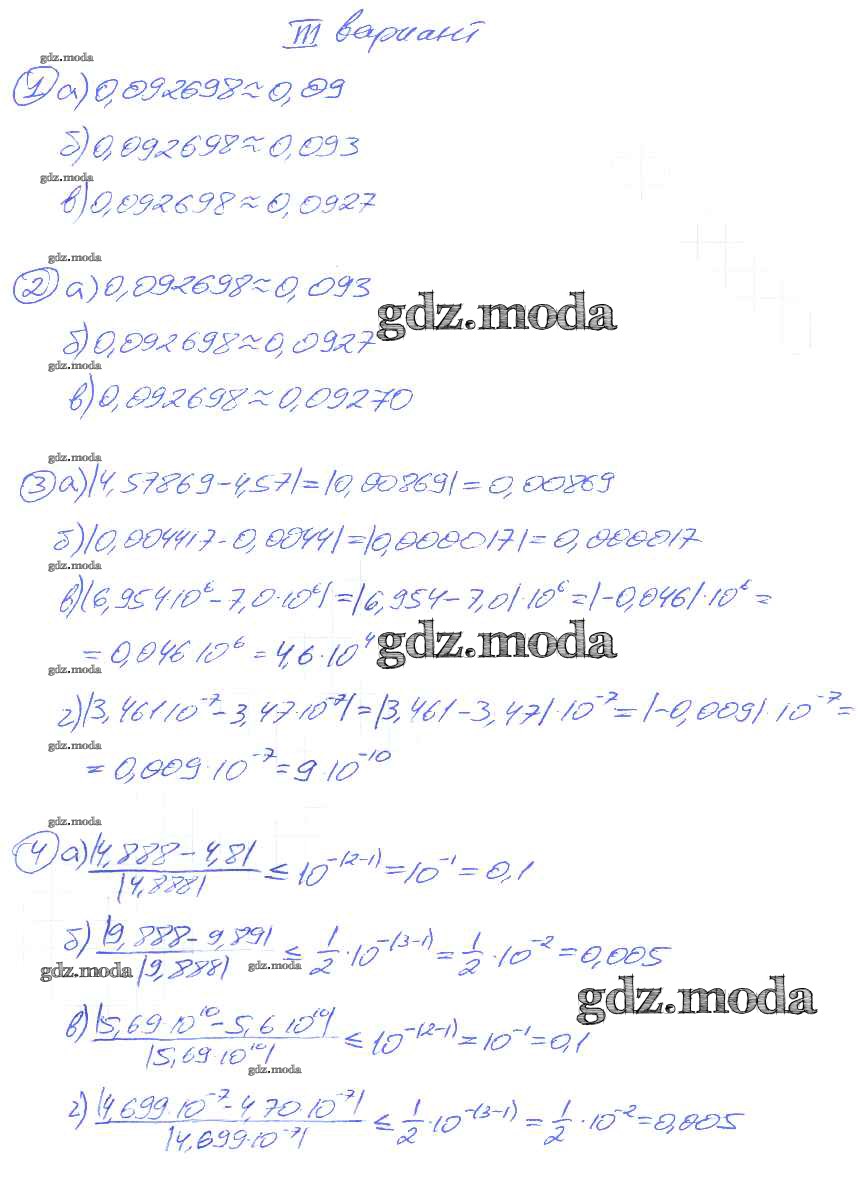 III вариант
gdz.moda
1 а) 0,092698 ≈ 0,09
б) 0,092698 ≈ 0,093
gdz.moda
в) 0,092698 ≈ 0,0927
gdz.moda
2 а) 0,092698 ≈ 0,093
gdz.moda
б) 0,092698 ≈ 0,0927
gdz.moda
в) 0,092698 ≈ 0,09270
gdz.moda
3 а) |4,57869 - 4,57| = |0,00869| = 0,00869
б) |0,004417 - 0,0044| = |0,000017| = 0,000017
gdz.moda
в) |6,954·10⁶ - 7,0·10⁶| = |6,954 - 7,0|·10⁶ = |-0,046|·10⁶ =
= 0,046·10⁶ = 4,6·10⁴
gdz.moda
gdz.moda
г) |3,461·10⁻⁷ - 3,47·10⁻⁷| = |3,461 - 3,47|·10⁻⁷ = |-0,009|·10⁻⁷ =
gdz.moda
= 0,009·10⁻⁷ = 9·10⁻¹⁰
gdz.moda
4 а) |4,888 - 4,8| / |4,888| ≤ 10⁻⁽²⁻¹⁾ = 10⁻¹ = 0,1
б) |9,888 - 9,89| / |9,888| ≤ 1/2·10⁻⁽³⁻¹⁾ = 1/2·10⁻² = 0,005
gdz.moda
gdz.moda
gdz.moda
в) |5,69·10¹⁰ - 5,6·10¹⁰| / |5,69·10¹⁰| ≤ 10⁻⁽²⁻¹⁾ = 10⁻¹ = 0,1
gdz.moda
г) |4,699·10⁻⁷ - 4,70·10⁻⁷| / |4,699·10⁻⁷| ≤ 1/2·10⁻⁽³⁻¹⁾ = 1/2·10⁻² = 0,005